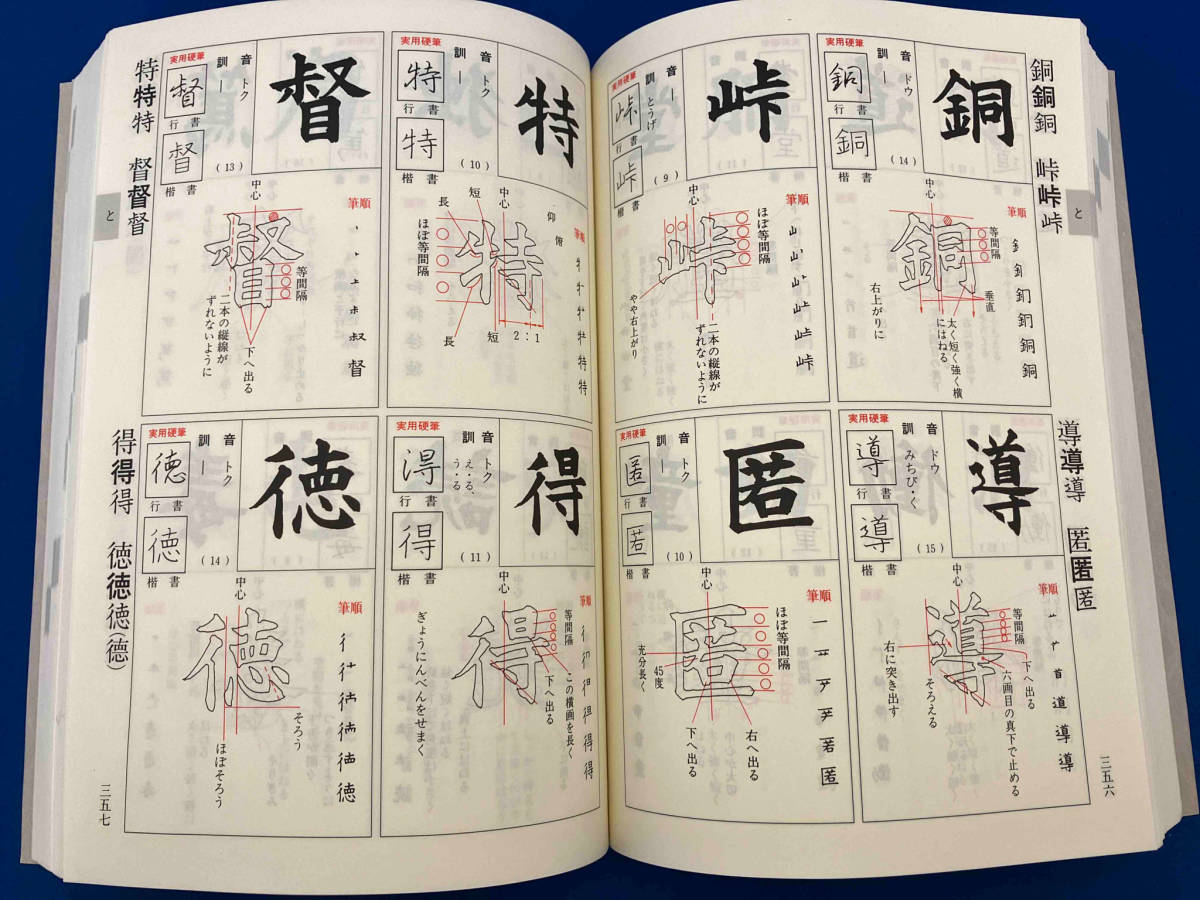 銅銅銅 峠峠峠
と
導導導 匿匿匿
三五六
銅
音 ドウ
訓 ―
(14)
実用硬筆
銅
行書
銅
楷書
筆順
中心
等間隔
垂直
太く短く強く横にはねる。
右上がりに
峠
音 ―
訓 とうげ
(9)
実用硬筆
峠
行書
峠
楷書
筆順
中心
ほぼ等間隔
二本の縦線が
ずれないように
やや右上がり
導
音 ドウ
訓 みちび・く
(15)
実用硬筆
導
行書
導
楷書
筆順
中心
等間隔
下へ出る
六画目の真下で止める
そろえる
右に突き出す
匿
音 トク
訓 ―
(10)
実用硬筆
匿
行書
匿
楷書
筆順
ほぼ等間隔
充分長く
45度
右へ出る
下へ出る
特特特 督督督
と
得得得 徳徳徳(德)
三五七
特
音 トク
訓 ―
(10)
実用硬筆
特
行書
特
楷書
筆順
仰
俯
中心
短
長
ほぼ等間隔
2:1
短
長
督
音 トク
訓 ―
(13)
実用硬筆
督
行書
督
楷書
筆順
中心
等間隔
下へ出る
二本の縦線が
ずれないように
得
音 トク
訓 え・る、
う・る
(11)
実用硬筆
得
行書
得
楷書
筆順
等間隔
この横画を長く
下へ出る
ぎょうにんべんをせまく
徳
音 トク
訓 ―
(14)
実用硬筆
徳
行書
徳
楷書
筆順
中心
そろう
ほぼそろう